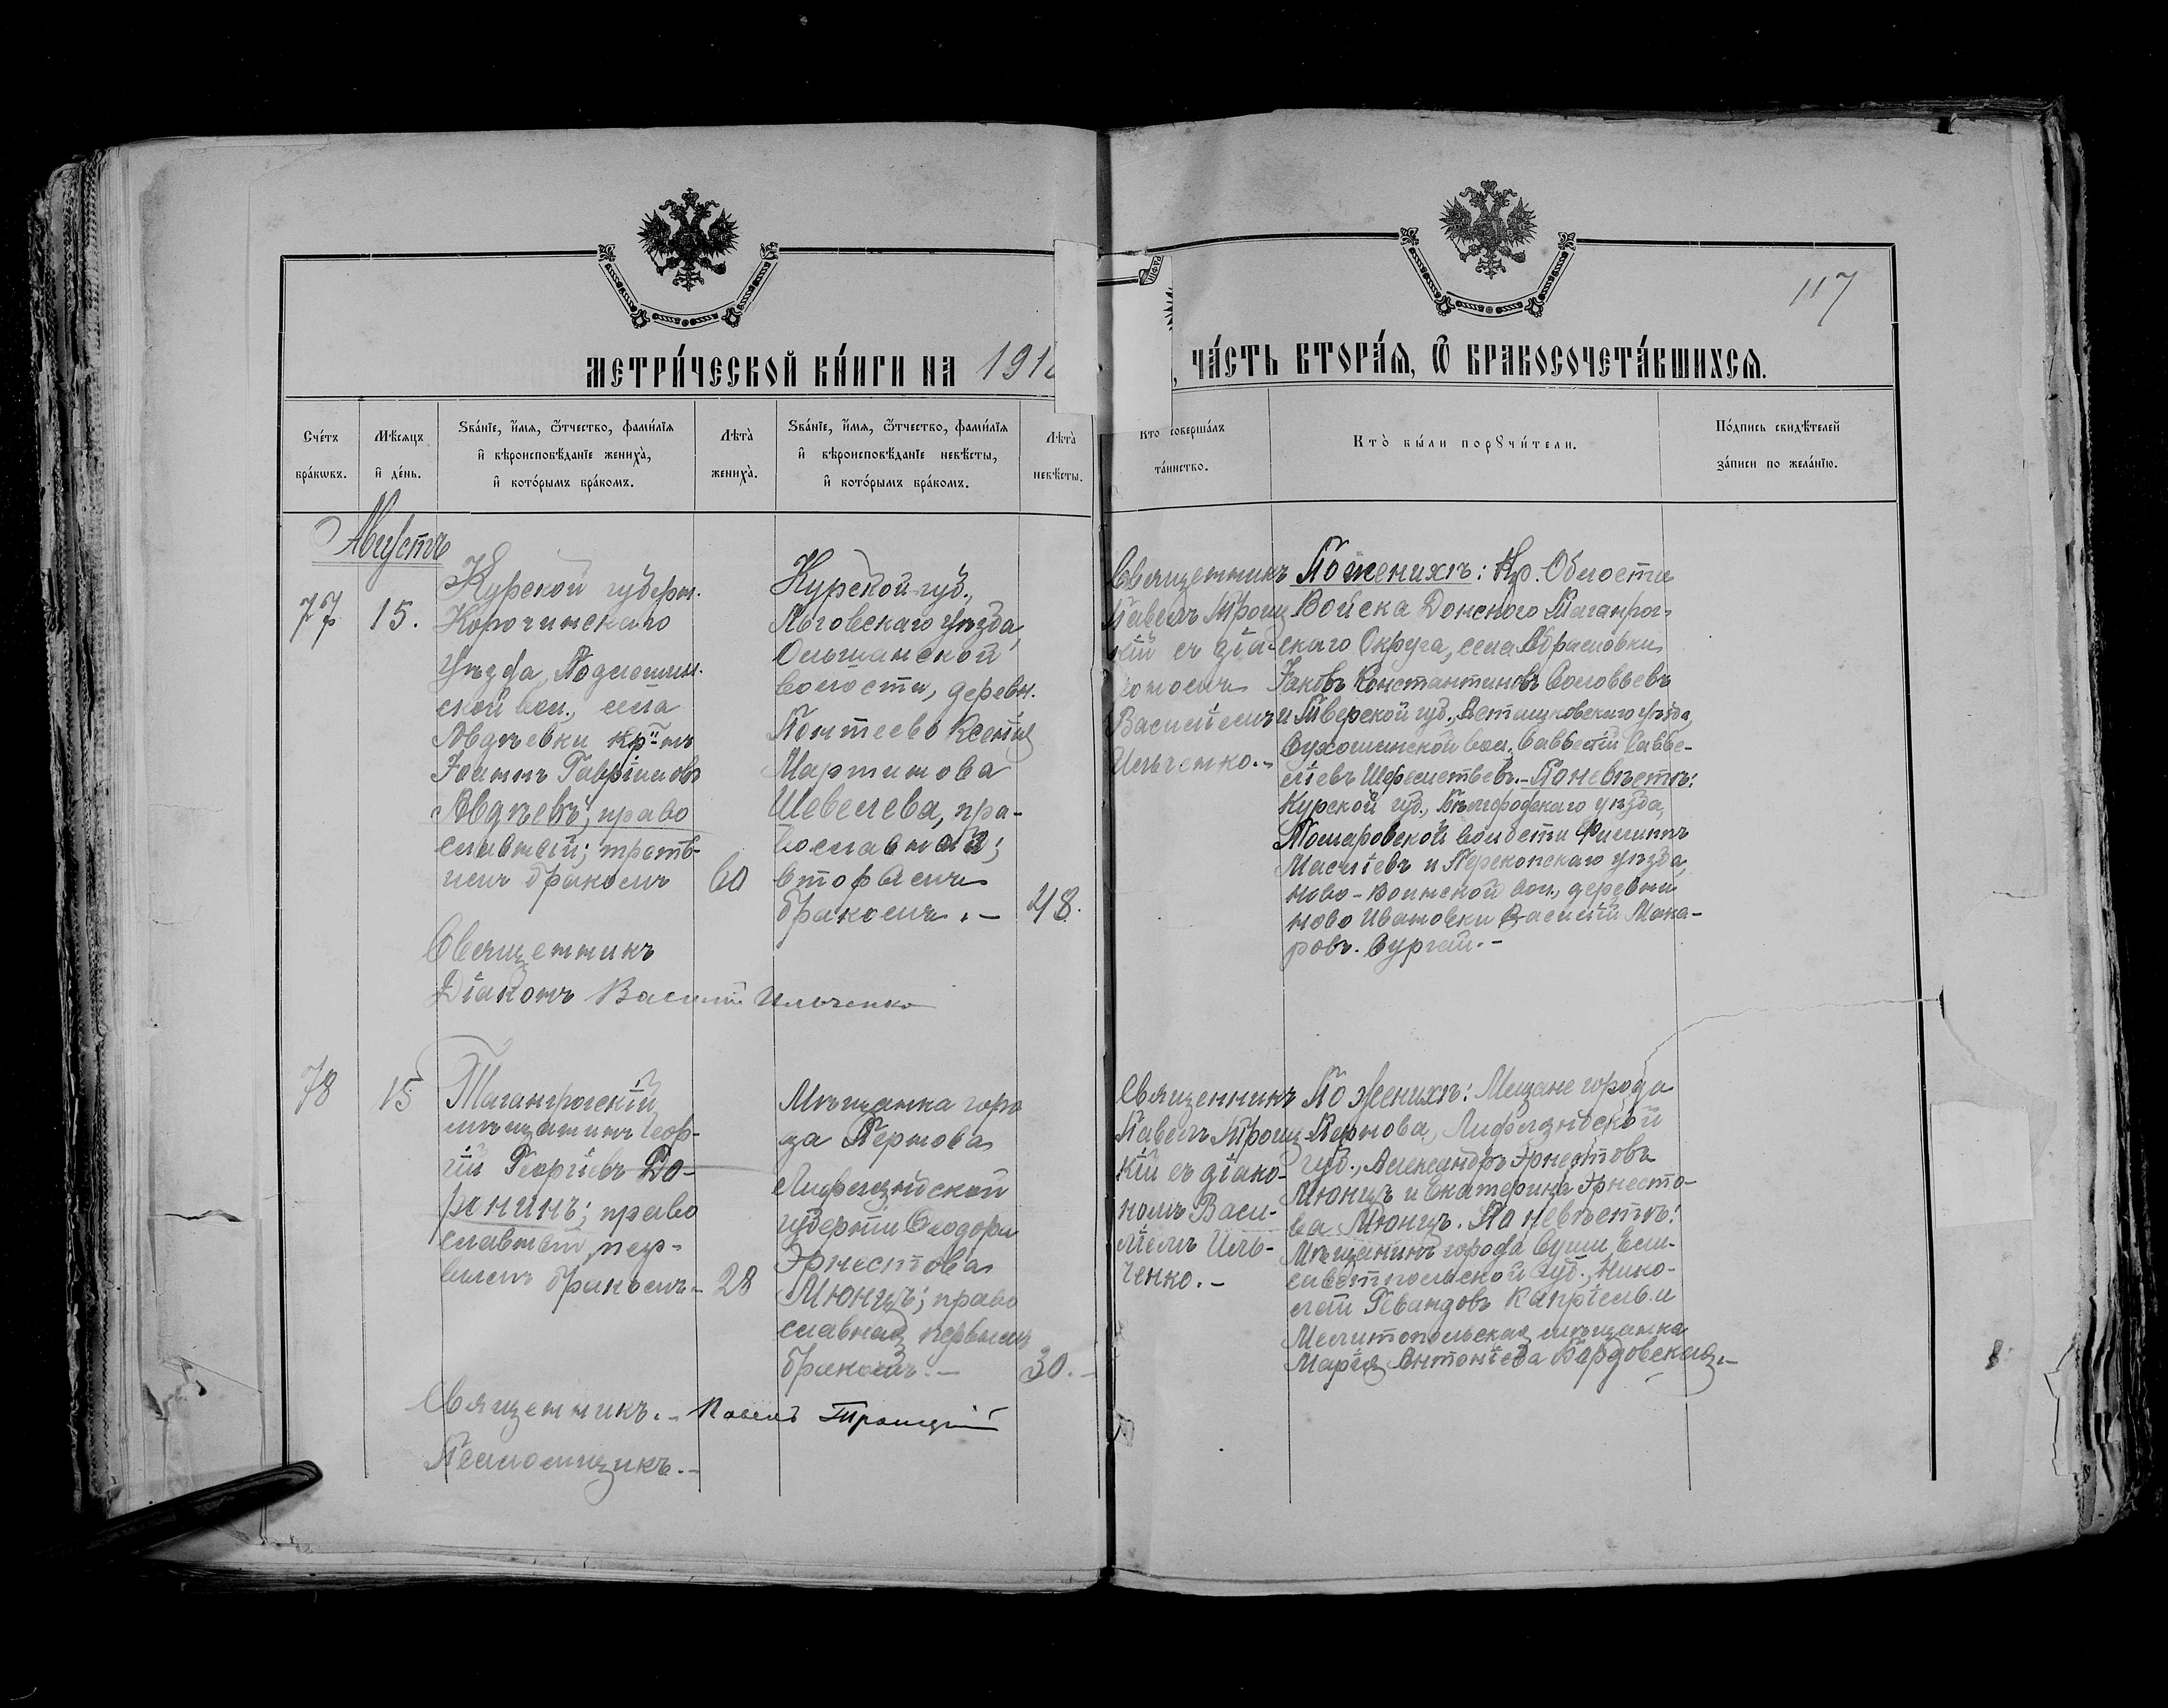 117
МЕТРИ́ЧЕСКОЙ КНИ́ГИ НА 191
, ЧА́СТЬ ВТОРА́Я, Ѿ БРАКОСОЧЕТА́ВШИХСЯ.
Сче́тъ бра́кѡвъ.
Мѣ́сяцъ и҆ де́нь.
Зва́нїе, и҆́мя, ѻ҆́тчество, фами́лїя
и҆ вѣроисповѣ́данїе жениха̀,
и҆ кото́рымъ бра́комъ.
Лѣта̀ жениха̀.
Зва́нїе, и҆́мя, ѻ҆́тчество, фами́лїя
и҆ вѣроисповѣ́данїе невѣ́сты,
и҆ кото́рымъ бра́комъ.
Лѣта̀ невѣ́сты.
Кто соверша́лъ
та́инство.
Кто̀ бы́ли порꙋчи́тели.
По́дпись свидѣ́телей
за́писи по жела́нїю.
Августъ
77
15.
Курской губерн.
Корочинскаго
уѣзда,
ской вол., села
Авдѣевки кр-нъ
Іоаннъ Гавріиловъ
Авдѣевъ; право
славный; треть-
имъ бракомъ
60
Курской губ.,
Льговскаго уѣзда,
Ольшанской
волости, деревн.
Ксенія
Мартинова
Шевелева, пра-
вославная;
вторымъ
бракомъ. –
48.
Священникъ
Павелъ Троиц
кій съ діа-
кономъ
Василіемъ
Ильченко. –
По женихѣ: Кр. Области
Войска Донского Таганрог-
скаго Округа, села
Іаковъ Константиновъ Соловьевъ
и Тверской губ., Осташковскаго уѣзда,
вол. Савватій Савва-
тіевъ – По невѣстѣ:
Курской губ., Бѣлгородскаго уѣзда,
Томаровской волости Филиппъ
и Перекопскаго уѣзда,
Ново- вол., деревни
Ново Ивановки Василій Мака-
ровъ. Сургай. –
Священникъ
Діаконъ Василій Ильченко
78
15
Таганрогскій
мѣщанинъ Геор-
гій Георгіевъ До-
ронинъ; право
славный, пер-
вымъ бракомъ –
28
Мѣщанка горо
да Пернова
Лифляндской
губерніи Ѳеодора
Эрнестова
Мюнцъ; право
славная первымъ
бракомъ. –
30. –
Священникъ
Павелъ Троиц-
кій съ діако-
номъ Васи-
ліемъ Иль-
ченко. –
По женихѣ: Мещане города
Пернова, Лифляндской
губ., Александръ Эрнестовъ
Мюнцъ и Екатерина Эрнесто-
ва Мюнцъ. По невѣстѣ:
Мѣщанинъ города
губ., Нико-
лай и
Мелитопольская мѣщанка
Марія Антоніева Бардовская. –
Священникъ. – Павелъ Троицкій
Псаломщикъ. –